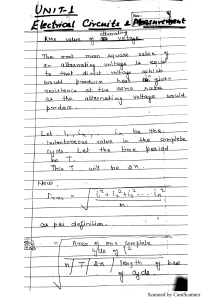 UNIT-1
Electrical Circuits & Measurement
alternating
RMS value of voltage
The root mean square value of
an alternating voltage is equal
to that direct voltage which
would produce heat in given
resistance at the same rate
as the alternating voltage would
produce.
Let i₁, i₂, in be the
instantaneous value in the complete
cycle. Let the time period
be T.
This T will be 2π.
Now,
Irms = √(i₁² + i₂² + i₃² ... in² / n)
as per definition.
= √(Area of one complete
cycle of i²
/ T / 2π / length of base
of cycle.)
Scanned by CamScanner